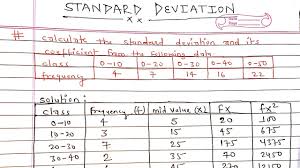 STANDARD DEVIATION
# calculate the standard deviation and its
coefficient from the following data
class 0-10 0-20 0-30 0-40 0-50
frequency 4 7 14 16 22
solution:
class frequency (f) mid value (x) fx fx²
0-10 4 5 20 100
10-20 3 15 45 675
20-30 7 25 175 4375
30-40 2 35 70 2450